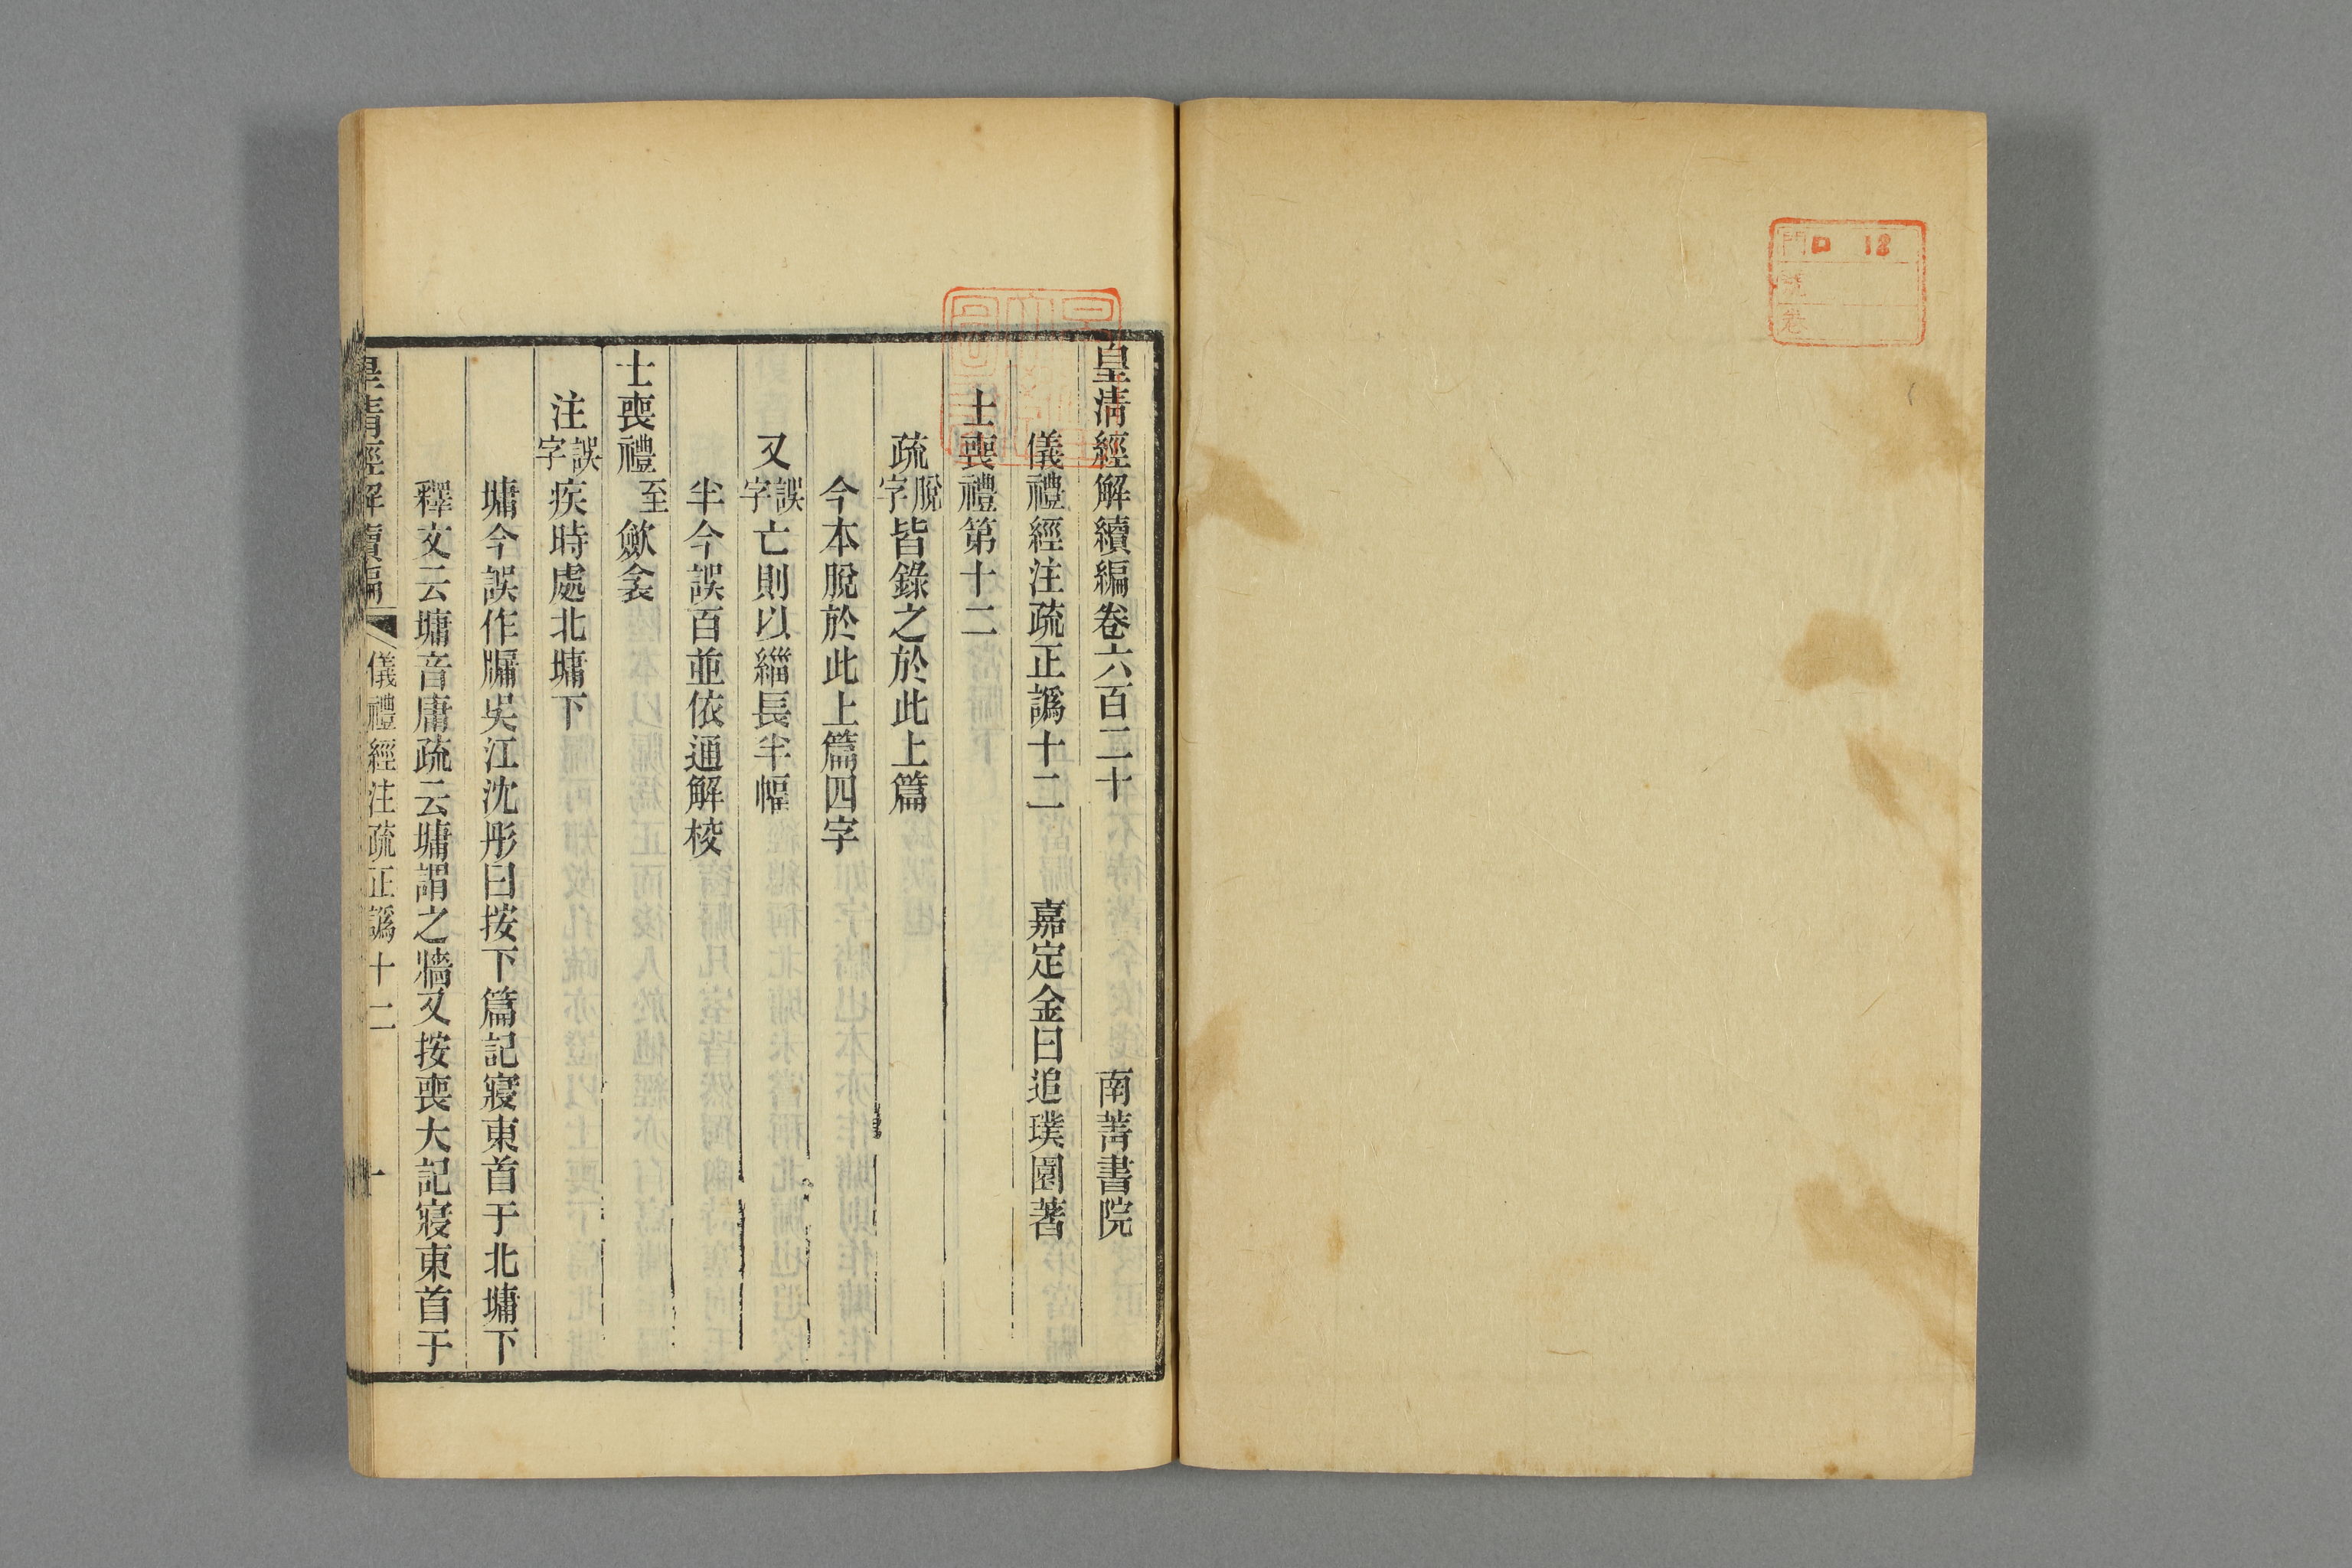 門 口 12
號
卷
皇清經解續編卷六百二十 南菁書院
儀禮經注疏正譌十二 嘉定金曰追璞園著
士喪禮第十二
疏脫字皆錄之於此上篇
今本脫於此上篇四字
又誤字亡則以緇長半幅
半今誤百並依通解挍
士喪禮至斂衾
注誤字疾時處北墉下
墉今誤作牖吳江沈彤曰按下篇記寢東首于北墉下
釋文云墉音庸疏云墉謂之牆又按喪大記寢東首于
皇清經解續編 儀禮經注疏正譌十二 一